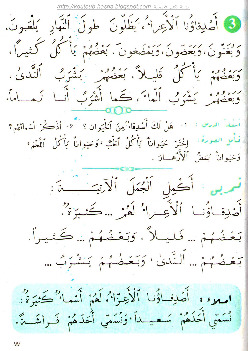 3 أَصْدِقَاؤُنَا الْأَعِزَّاءُ، يَظَلُّونَ طُولَ النَّهَارِ يَلْعَبُونَ،
وَيُغَنُّونَ، وَيَقْفِزُونَ، بَعْضُهُمْ يَأْكُلُ كَثِيراً،
وَبَعْضُهُمْ يَأْكُلُ قَلِيلاً، بَعْضُهُمْ يَشْرَبُ النَّدَى،
وَبَعْضُهُمْ يَشْرَبُ الْمَاءَ، كَمَا أَشْرَبُ أَنَا تَمَاماً.
هَلْ لَكَ أَصْدِقَاءُ مِنَ الْحَيَوَانِ ؟ أُذْكُرْ أَسْمَاءَهُمْ ؟
حَيَوَاناً يَأْكُلُ
تمرين : أَكْمِلِ الْجُمَلَ الْآتِيَةَ :
أَصْدِقَاؤُنَا الْأَعِزَّاءُ لَهُمْ ... كَثِيرَةٌ.
بَعْضُهُمْ ... قَلِيلاً. وَبَعْضُهُمْ ... كَثِيراً.
بَعْضُهُمْ ... النَّدَى، وَبَعْضُهُمْ يَشْرَبُ ...
إملاء : أَصْدِقَاؤُنَا الْأَعِزَّاءُ، لَهُمْ أَسْمَاءٌ كَثِيرَةٌ :
نُسَمِّي أَحَدَهُمْ سَعِيداً، وَنُسَمِّي أَحَدَهُمْ فَرَاشَةً.